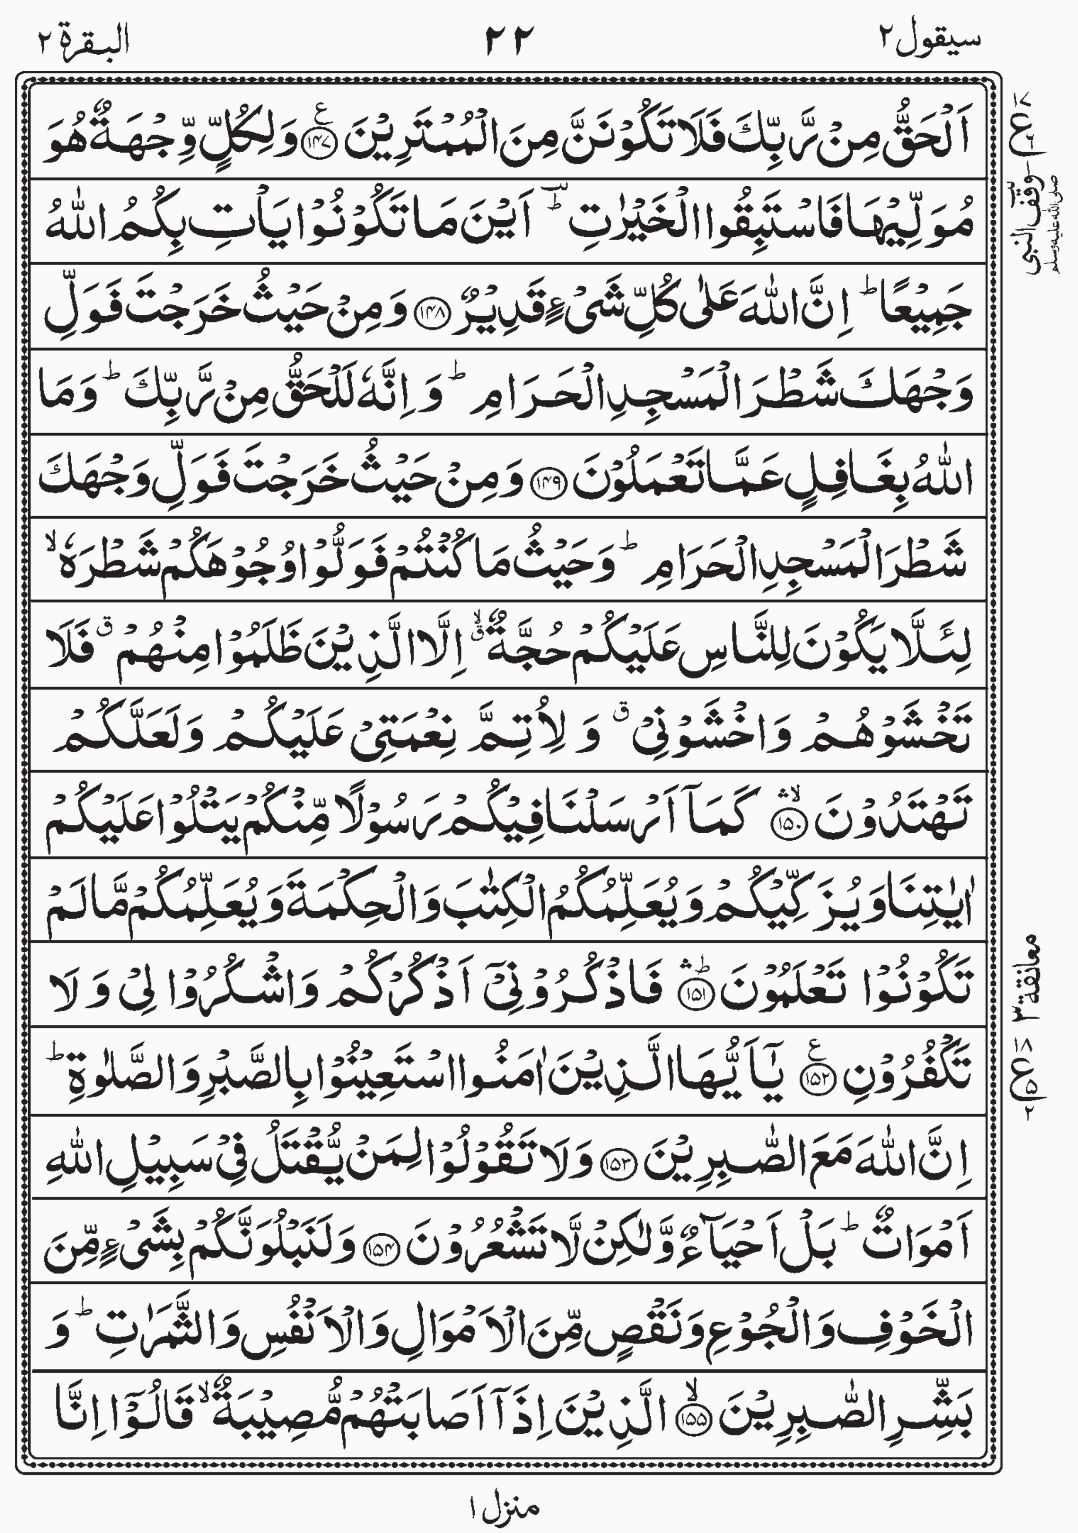 سيقول ٢
٢٢
البقرة ٢
اَلۡحَقُّ مِنۡ رَّبِّكَ فَلَا تَكُوۡنَنَّ مِنَ الۡمُمۡتَرِيۡنَ ﴿۱۴۷﴾ ع وَ لِكُلٍّ وِّجۡهَةٌ هُوَ
مُوَلِّيۡهَا فَاسۡتَبِقُوا الۡخَيۡرٰتِ ؕ اَيۡنَ مَا تَكُوۡنُوۡا يَاۡتِ بِكُمُ اللّٰهُ
جَمِيۡعًا ؕ اِنَّ اللّٰهَ عَلٰى كُلِّ شَىۡءٍ قَدِيۡرٌ ﴿۱۴۸﴾ وَ مِنۡ حَيۡثُ خَرَجۡتَ فَوَلِّ
وَجۡهَكَ شَطۡرَ الۡمَسۡجِدِ الۡحَرَامِ ؕ وَ اِنَّهٗ لَلۡحَقُّ مِنۡ رَّبِّكَ ؕ وَمَا
اللّٰهُ بِغَافِلٍ عَمَّا تَعۡمَلُوۡنَ ﴿۱۴۹﴾ وَ مِنۡ حَيۡثُ خَرَجۡتَ فَوَلِّ وَجۡهَكَ
شَطۡرَ الۡمَسۡجِدِ الۡحَرَامِ ؕ وَحَيۡثُ مَا كُنۡتُمۡ فَوَلُّوۡا وُجُوۡهَكُمۡ شَطۡرَهٗ ۙ
لِئَلَّا يَكُوۡنَ لِلنَّاسِ عَلَيۡكُمۡ حُجَّةٌ ۙ ق اِلَّا الَّذِيۡنَ ظَلَمُوۡا مِنۡهُمۡ ق فَلَا
تَخۡشَوۡهُمۡ وَاخۡشَوۡنِىۡ ق وَ لِاُتِمَّ نِعۡمَتِىۡ عَلَيۡكُمۡ وَلَعَلَّكُمۡ
تَهۡتَدُوۡنَ ۙۛ ﴿۱۵۰﴾ كَمَآ اَرۡسَلۡنَا فِيۡكُمۡ رَسُوۡلًا مِّنۡكُمۡ يَتۡلُوۡا عَلَيۡكُمۡ
اٰيٰتِنَا وَيُزَكِّيۡكُمۡ وَيُعَلِّمُكُمُ الۡكِتٰبَ وَالۡحِكۡمَةَ وَيُعَلِّمُكُمۡ مَّا لَمۡ
تَكُوۡنُوۡا تَعۡلَمُوۡنَ ؕۛ ﴿۱۵۱﴾ فَاذۡكُرُوۡنِىۡٓ اَذۡكُرۡكُمۡ وَاشۡكُرُوۡا لِىۡ وَ لَا
تَكۡفُرُوۡنِ ﴿۱۵۲﴾ ع يٰٓاَيُّهَا الَّذِيۡنَ اٰمَنُوا اسۡتَعِيۡنُوۡا بِالصَّبۡرِ وَالصَّلٰوةِ ؕ
اِنَّ اللّٰهَ مَعَ الصّٰبِرِيۡنَ ﴿۱۵۳﴾ وَلَا تَقُوۡلُوۡا لِمَنۡ يُّقۡتَلُ فِىۡ سَبِيۡلِ اللّٰهِ
اَمۡوَاتٌ ؕ بَلۡ اَحۡيَآءٌ وَّلٰكِنۡ لَّا تَشۡعُرُوۡنَ ﴿۱۵۴﴾ وَلَنَبۡلُوَنَّكُمۡ بِشَىۡءٍ مِّنَ
الۡخَوۡفِ وَالۡجُوۡعِ وَنَقۡصٍ مِّنَ الۡاَمۡوَالِ وَالۡاَنۡفُسِ وَالثَّمَرٰتِ ؕ وَ
بَشِّرِ الصّٰبِرِيۡنَ ۙ ﴿۱۵۵﴾ الَّذِيۡنَ اِذَآ اَصَابَتۡهُمۡ مُّصِيۡبَةٌ ۙ قَالُوۡٓا اِنَّا
وقف النبي
صلى الله عليه وسلم
معانقة ٣
ع
منزل ١